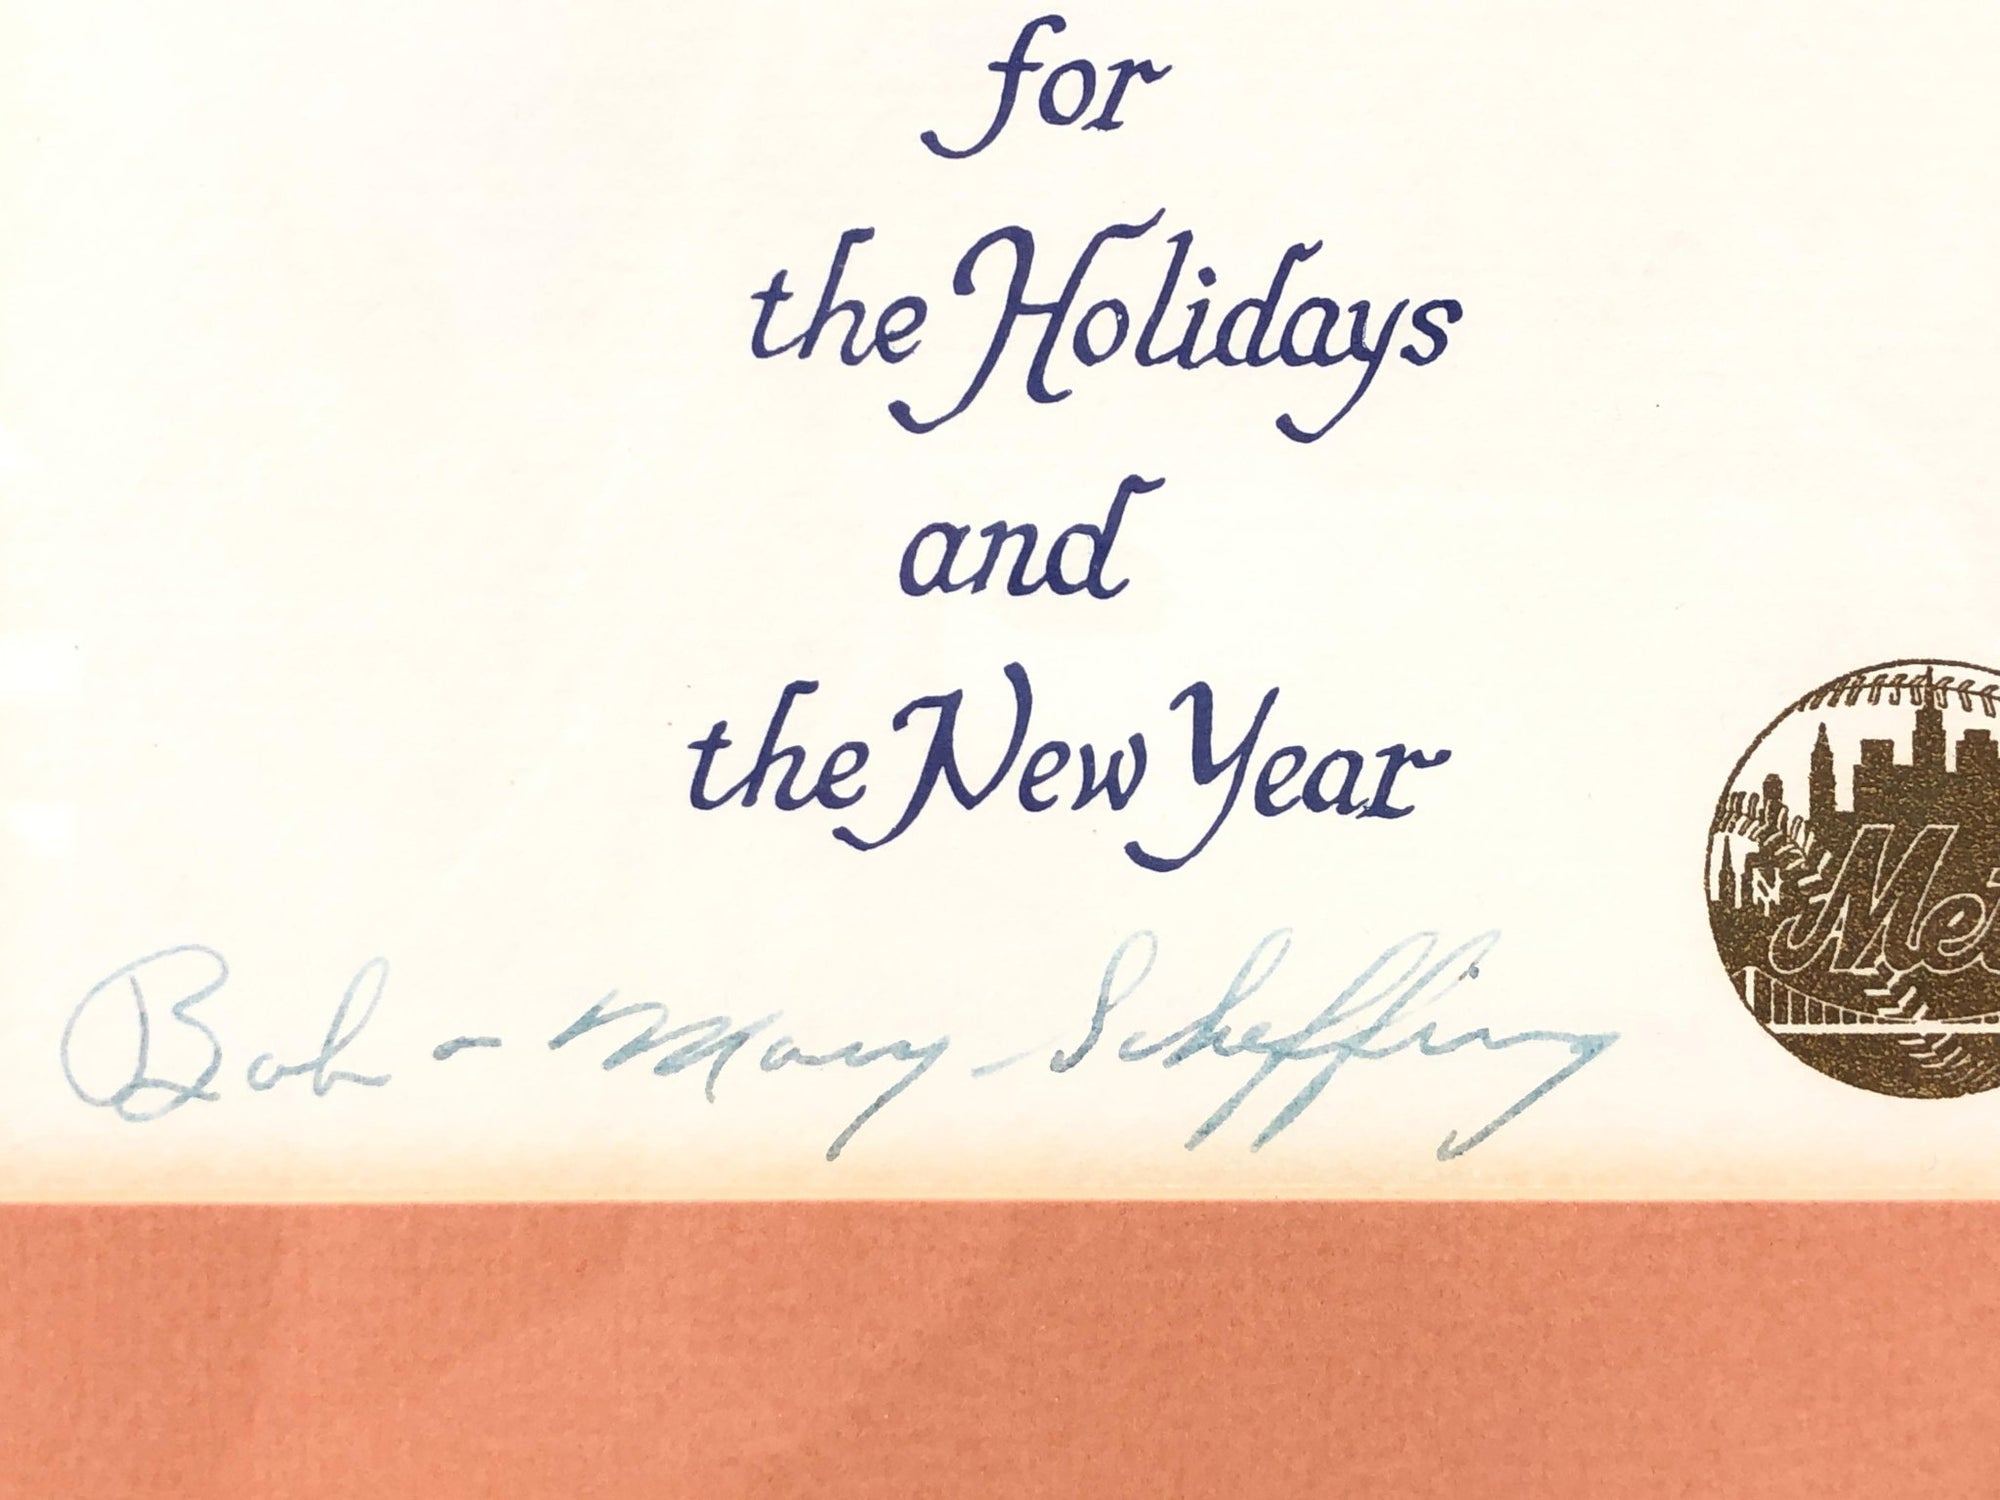 for
the Holidays
and
the New Year
Bob - Mary Scheffing
NY
Met